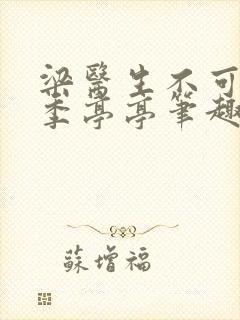 梁醫生不可
季亭亭筆趣
蘇增福